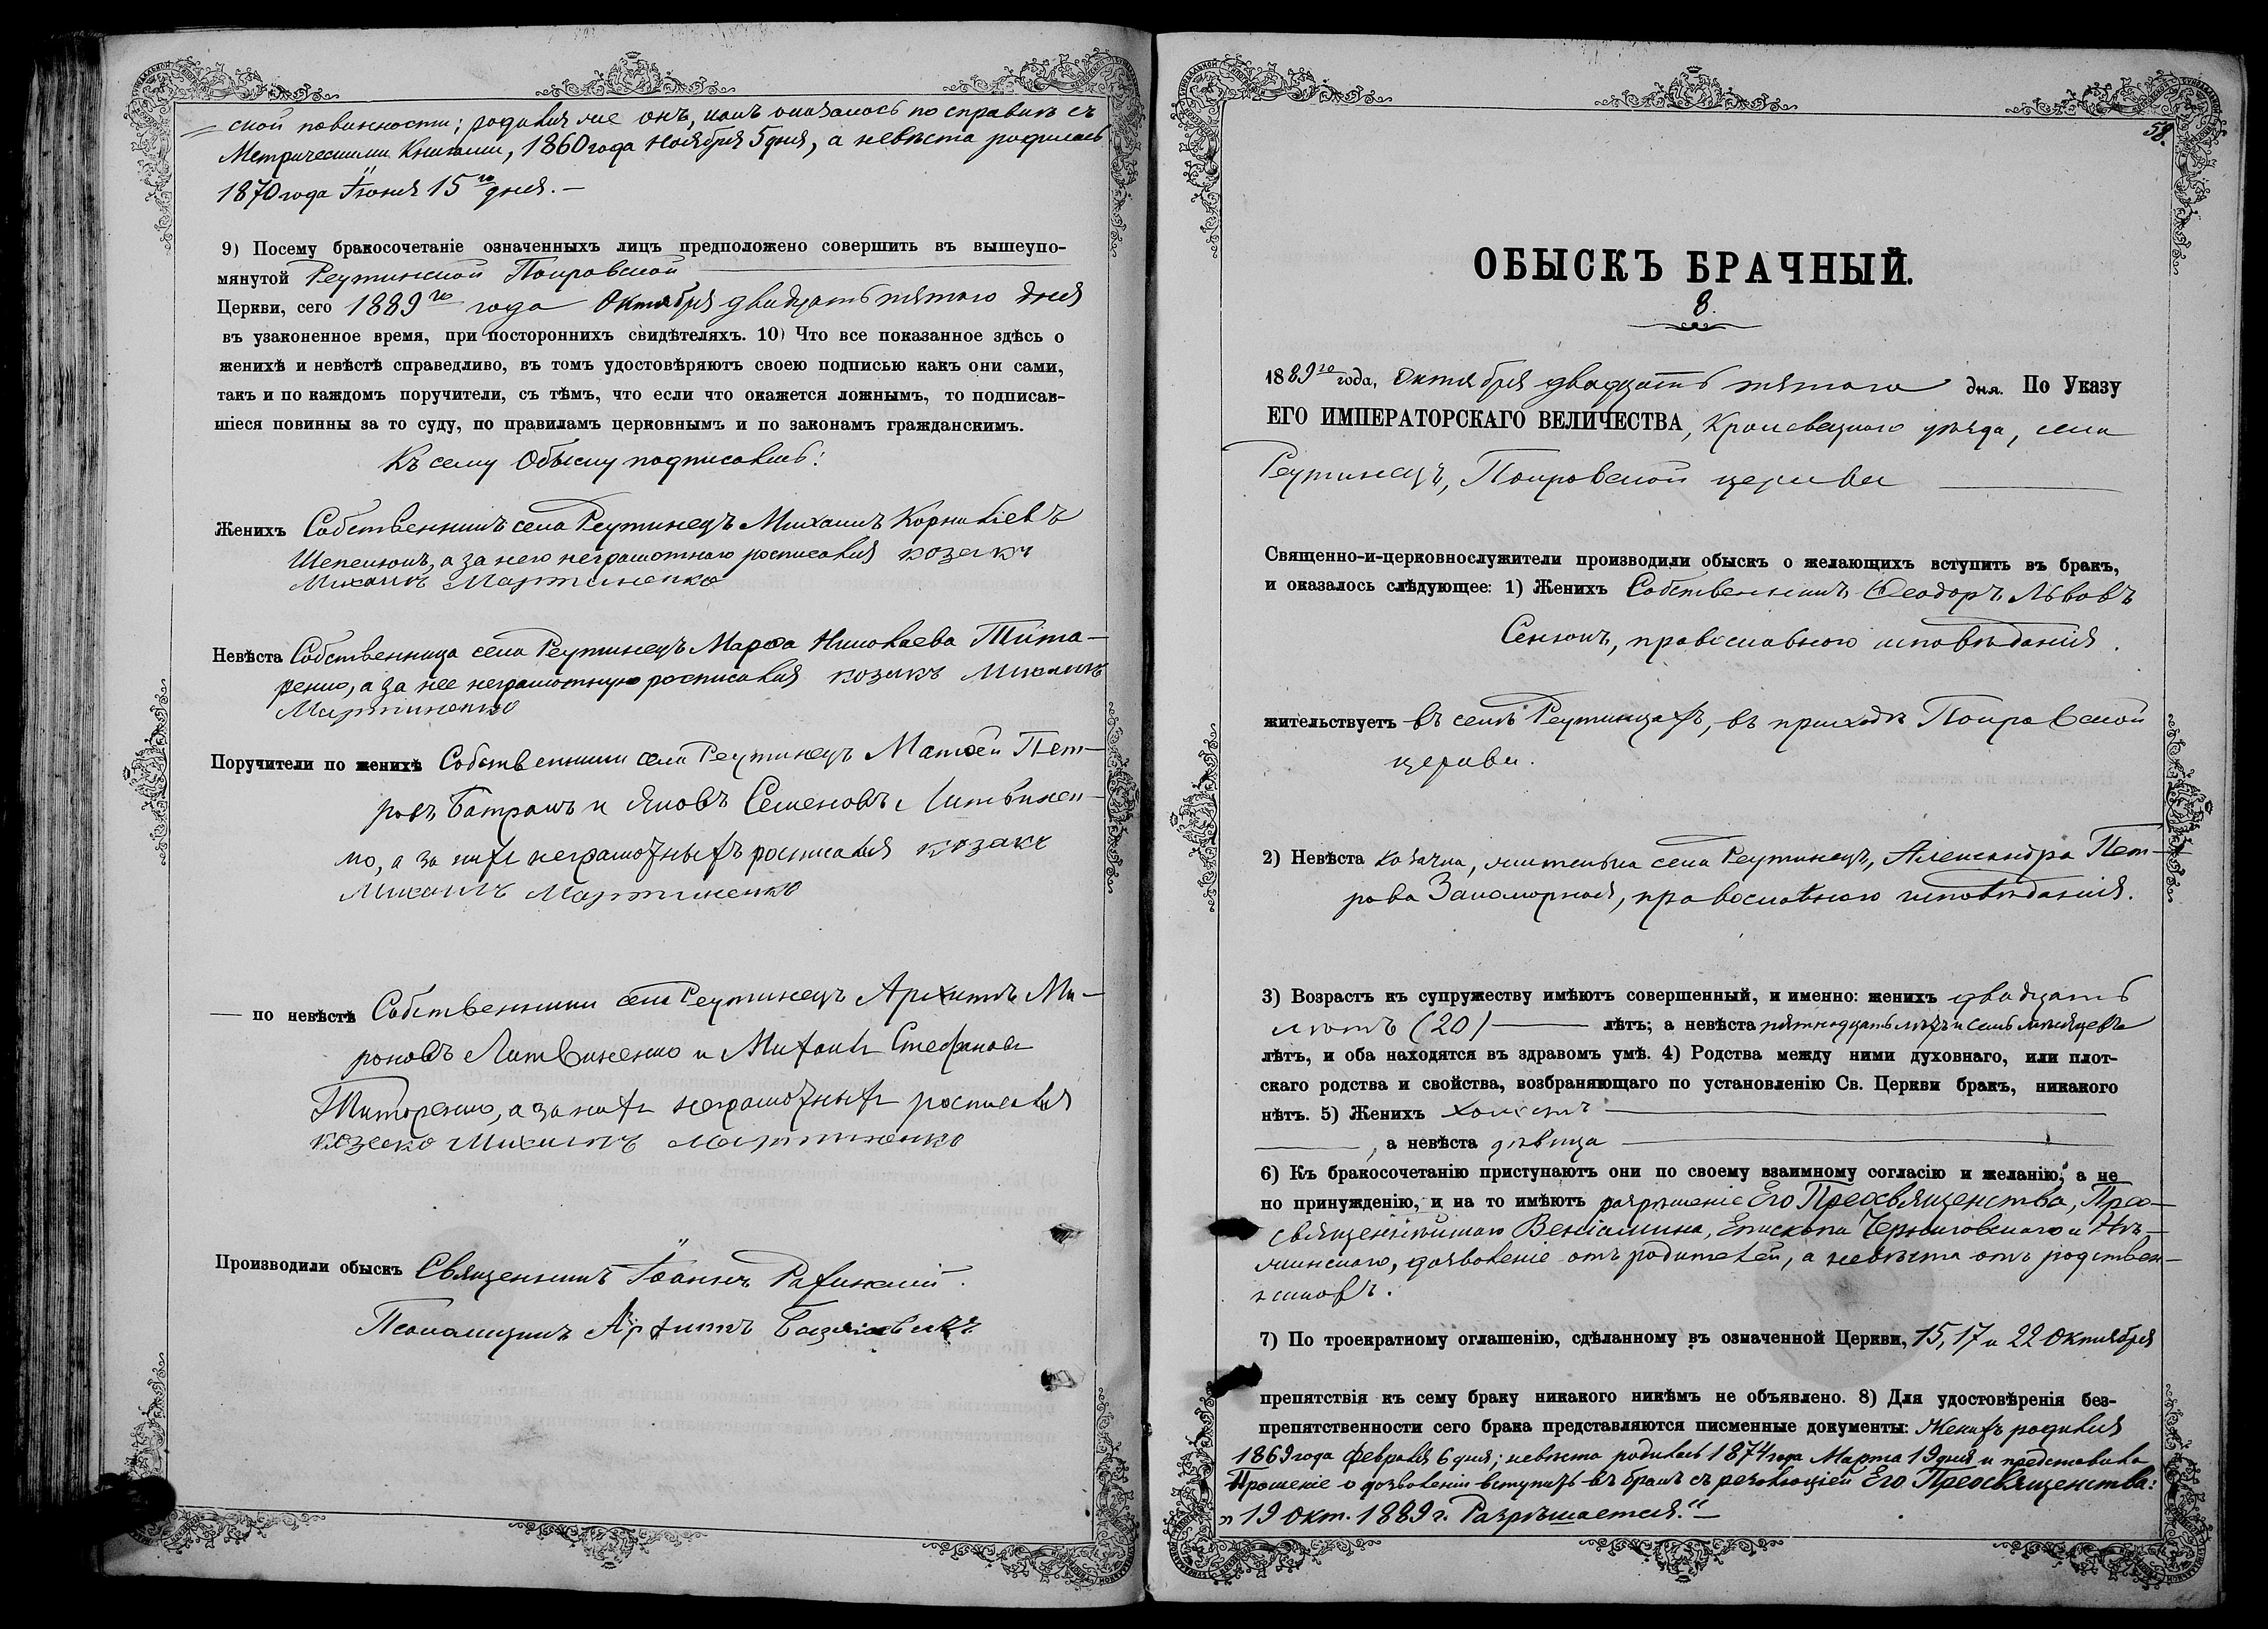 ской повинности; родился же онъ, какъ оказалось по справкѣ съ
Метрическими Книгами, 1860 года Ноября 5 дня, а невѣста родилась
1870 года Іюня 15го дня. —
9) Посему бракосочетаніе означенныхъ лицъ предположено совершить въ вышеупо-
мянутой Реутинской Покровской
Церкви, сего 1889го года Октября двадцать пятаго дня
въ узаконенное время, при постороннихъ свидѣтеляхъ. 10) Что все показанное здѣсь о
женихѣ и невѣстѣ справедливо, въ томъ удостовѣряютъ своею подписью какъ они сами,
такъ и по каждомъ поручители, съ тѣмъ, что если что окажется ложнымъ, то подписав-
шіеся повинны за то суду, по правиламъ церковнымъ и по законамъ гражданскимъ.
Къ сему Обыску подписались:
Женихъ Собственникъ села Реутинецъ Михаилъ Корниліевъ
Шепелюкъ, а за него неграмотнаго росписался козакъ
Михаилъ Мартиненко
Невѣста Собственница села Реутинецъ Марѳа Николаева Тита-
ренко, а за нее неграмотную росписался козакъ Михаилъ
Мартиненко
Поручители по женихѣ Собственники села Реутинецъ Матѳей Пет-
ровъ Батракъ и Яковъ Семеновъ Литвинен-
ко, а за нихъ неграмотныхъ росписался козакъ
Михаилъ Мартиненко
— по невѣстѣ Собственники села Реутинецъ Архипъ Ми-
роновъ Литвиненко и Михаилъ Стефановъ
Титаренко, а за нихъ неграмотныхъ росписался
козакъ Михаилъ Мартиненко
Производили обыскъ Священникъ Іоаннъ
Псаломщикъ Архипъ Базилевичъ
58.
ОБЫСКЪ БРАЧНЫЙ.
8.
1889го года, Октября двадцать пятаго дня. По Указу
ЕГО ИМПЕРАТОРСКАГО ВЕЛИЧЕСТВА, Кролевецкаго уѣзда, села
Реутинецъ, Покровской церкви
Священно-и-церковнослужители производили обыскъ о желающихъ вступить въ бракъ,
и оказалось слѣдующее: 1) Женихъ Собственникъ Ѳеодоръ Львовъ
Сенюкъ, православнаго исповѣданія.
жительствуетъ въ селѣ Реутинцахъ, въ приходѣ Покровской
церкви.
2) Невѣста козачка, жителька села Реутинецъ, Александра Пет-
рова Закоморная, православнаго исповѣданія.
3) Возрастъ къ супружеству имѣютъ совершенный, и именно: женихъ двадцать
лѣтъ (20) — лѣтъ; а невѣста пятнадцать лѣтъ и семь мѣсяцевъ
лѣтъ, и оба находятся въ здравомъ умѣ. 4) Родства между ними духовнаго, или плот-
скаго родства и свойства, возбраняющаго по установленію Св. Церкви бракъ, никакого
нѣтъ. 5) Женихъ холостъ
, а невѣста дѣвица
6) Къ бракосочетанію приступаютъ они по своему взаимному согласію и желанію, а не
по принужденію, и на то имѣютъ разрѣшеніе Его Преосвященства, Прео-
священнѣйшаго Веніамина, Епископа Черниговскаго и Нѣ-
жинскаго, дозволеніе отъ родителей, а невѣста отъ родствен-
никовъ.
7) По троекратному оглашенію, сдѣланному въ означенной Церкви, 15, 17 и 22 Октября
препятствія къ сему браку никакого никѣмъ не объявлено. 8) Для удостовѣренія без-
препятственности сего брака представляются писменные документы: Женихъ родился
1869 года Февраля 6 дня; невѣста родилась 1874 года Марта 19 дня и представила
Прошеніе о дозволеніи вступить въ бракъ съ резолюціей Его Преосвященства:
„19 Окт. 1889 г. Разрѣшается." —